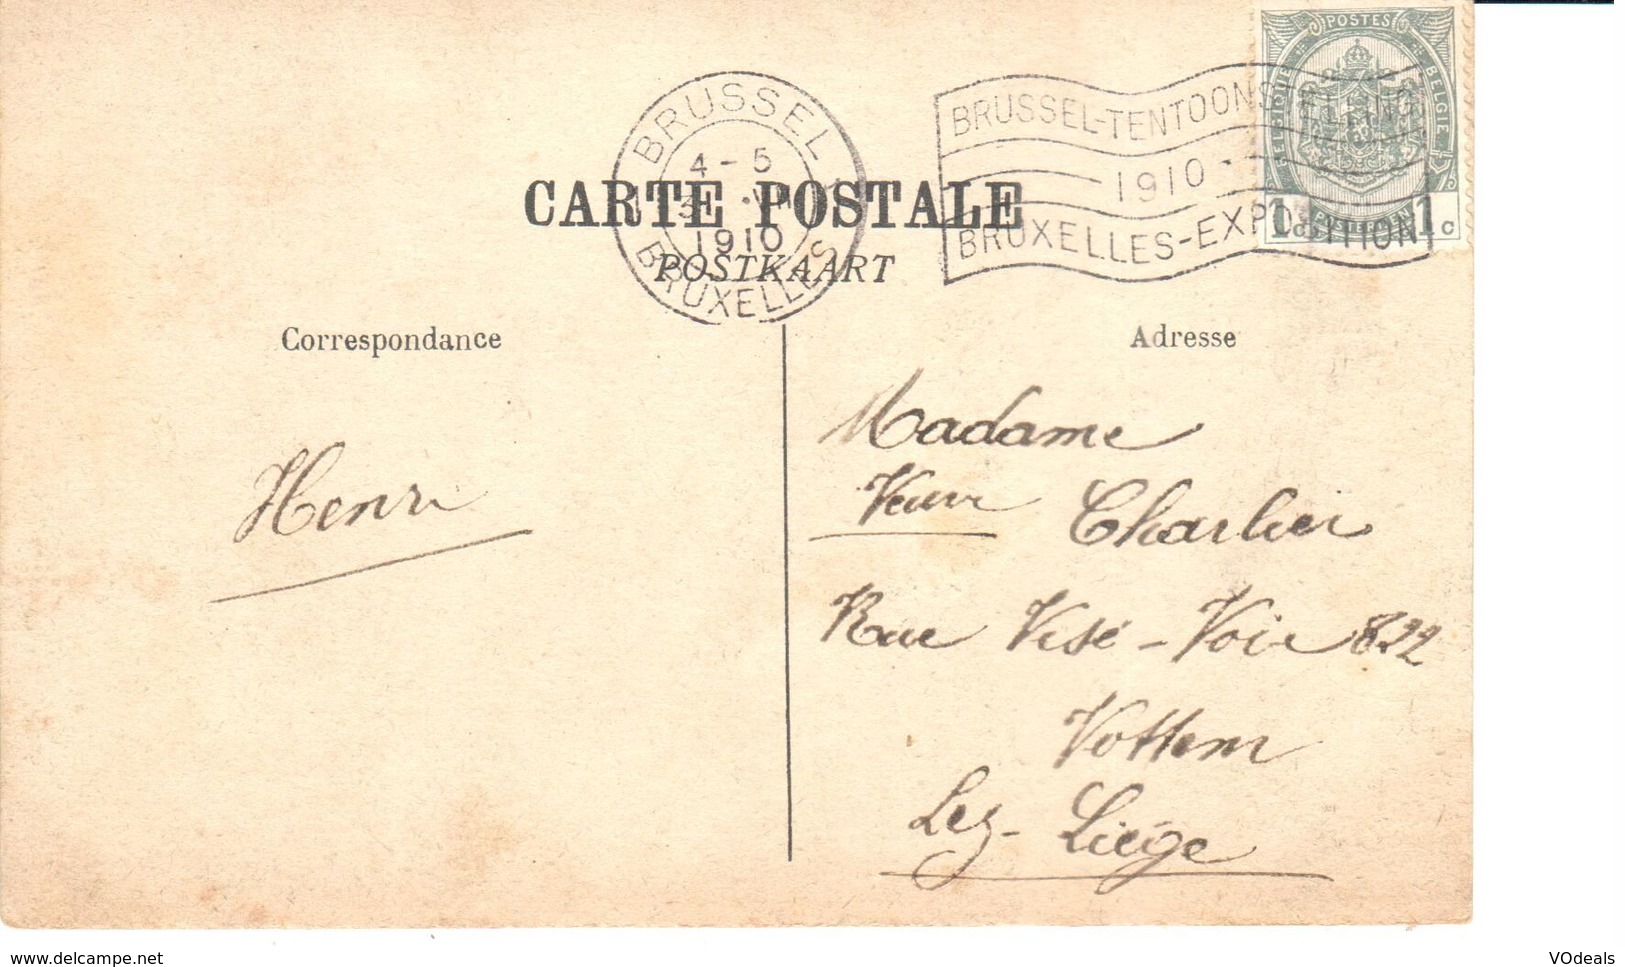 POSTES
BELGIQUE
BELGIE
POSTERIJEN
1c
1c
BRUSSEL
4-5
1910
BRUXELLES
BRUSSEL-TENTOONSTELLING
1910
BRUXELLES-EXPOSITION
CARTE POSTALE
POSTKAART
Correspondance
Adresse
Henri
Madame
Veuve Charlier
Rue Visé-Voie 822
Vottem
Lez-Liége
www.delcampe.net
VOdeals